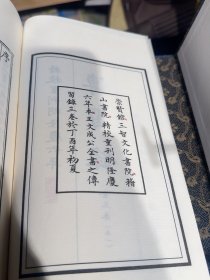 崇賢館三智文化書院稽
山書院精校重刊明隆慶
六年本王文成公全書之傳
習錄三卷於丁酉年初夏
序